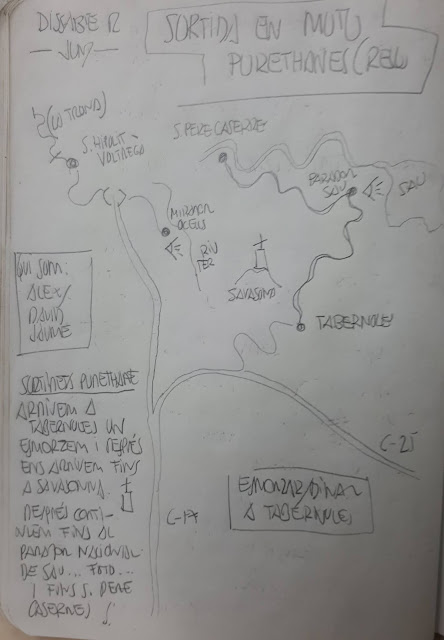 DISSABTE 12
JUNY
SORTIDA EN MOTO
PURETHANES (RELU
(LA TRONA)
S. HIPOLIT
VOLTREGA
S. PERE CASERRES
PARADOR
SAU
SAU
MIRADOR
OCELLS
RIU
TER
SAVASONA
TABERNOLES
QUI SOM:
ALEX,
DAVID
JAUME
SORTIDETA PURETHANE
ARRIVEM A
TABERNOLES UN
ESMORZEM I DESPRÉS
ENS ARRIVEM FINS
A SAVASONNA.
DESPRÉS CONTI-
NUEM FINS AL
PARADOR NACIONAL
DE SAU... FOTO...
I FINS S. PERE
CASERRES
C-17
C-25
ESMORZAR/DINAR
A TABERNOLES